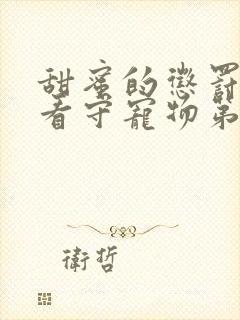 甜蜜的懲罰
看守寵物第
衛哲